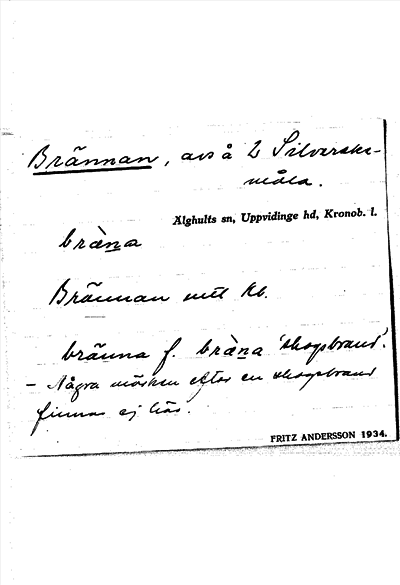 Brännan, avs å 2 Silverske-
måla.
Älghults sn, Uppvidinge hd, Kronob. l.
bràna
Brännan utt kb.
bränna f. bràna 'skogsbrand'.
– Några märken efter en skogsbrand
finnas ej här.
FRITZ ANDERSSON 1934.